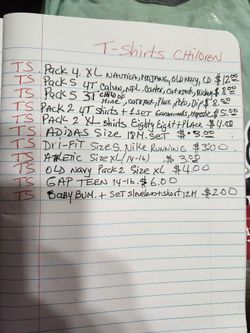 T-Shirts CHILDREN
TS Pack 4. XL NAUTICA, OLD NAVY, CD $12.00
TS Pack 5 4T NFL. Carter, cat & Jack, $8.00
TS Pack 5 3T CHILD OF
Mine, cat & Jack, Place, Dip $8.00
TS Pack 2 4T Shirts + 1 SET Garanimals, $5.00
TS Pack 2 XL Shirts Eighty Eight + PLACE $4.00
TS ADIDAS Size 18M. SET $5.00
TS Dri-FIT Size S. Nike RUNNING $3.00
TS AtLETic Size XL (14-16) $3.00
TS OLD Navy Pack 2 Size XL $4.00
TS GAP TEEN 14-16. $6.00
TS BABY BUM. + SET Sleveless + short 12M $2.00